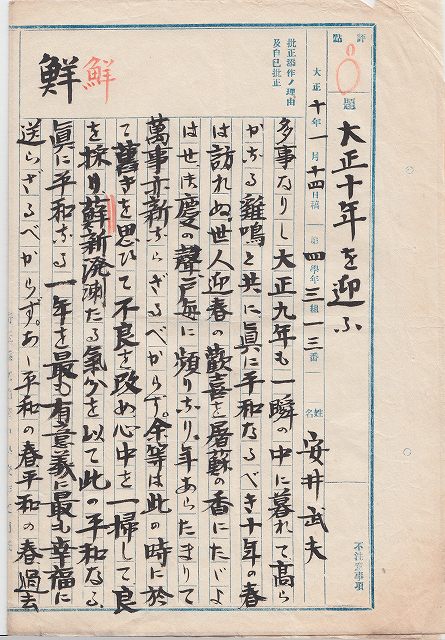 評點
題
大正十年を迎ふ
大正十年一月十四日稿
第四學年三組一三番
姓名
安井武夫
不注意事項
批正添作ノ理由
及自己批正
鮮
鮮
多事なりし大正九年も一瞬の中に暮れて高ら
かなる雞鳴と共に眞に平和なるべき十年の春
は訪れぬ。世人迎春の歡喜を屠蘇の香にたゞよ
はせ、慶の聲戸毎に頻りなり。年あらたまりて
萬事亦新ならざるべからず。余等は此の時に於
て舊事を思ひて不良を改め心中を一掃して良
を採り、蘇新溌溂たる氣分を以て此の平和なる、
眞に平和なる一年を最も有意義に最も幸福に
送らざるべからず。あー平和の春平和の春過去